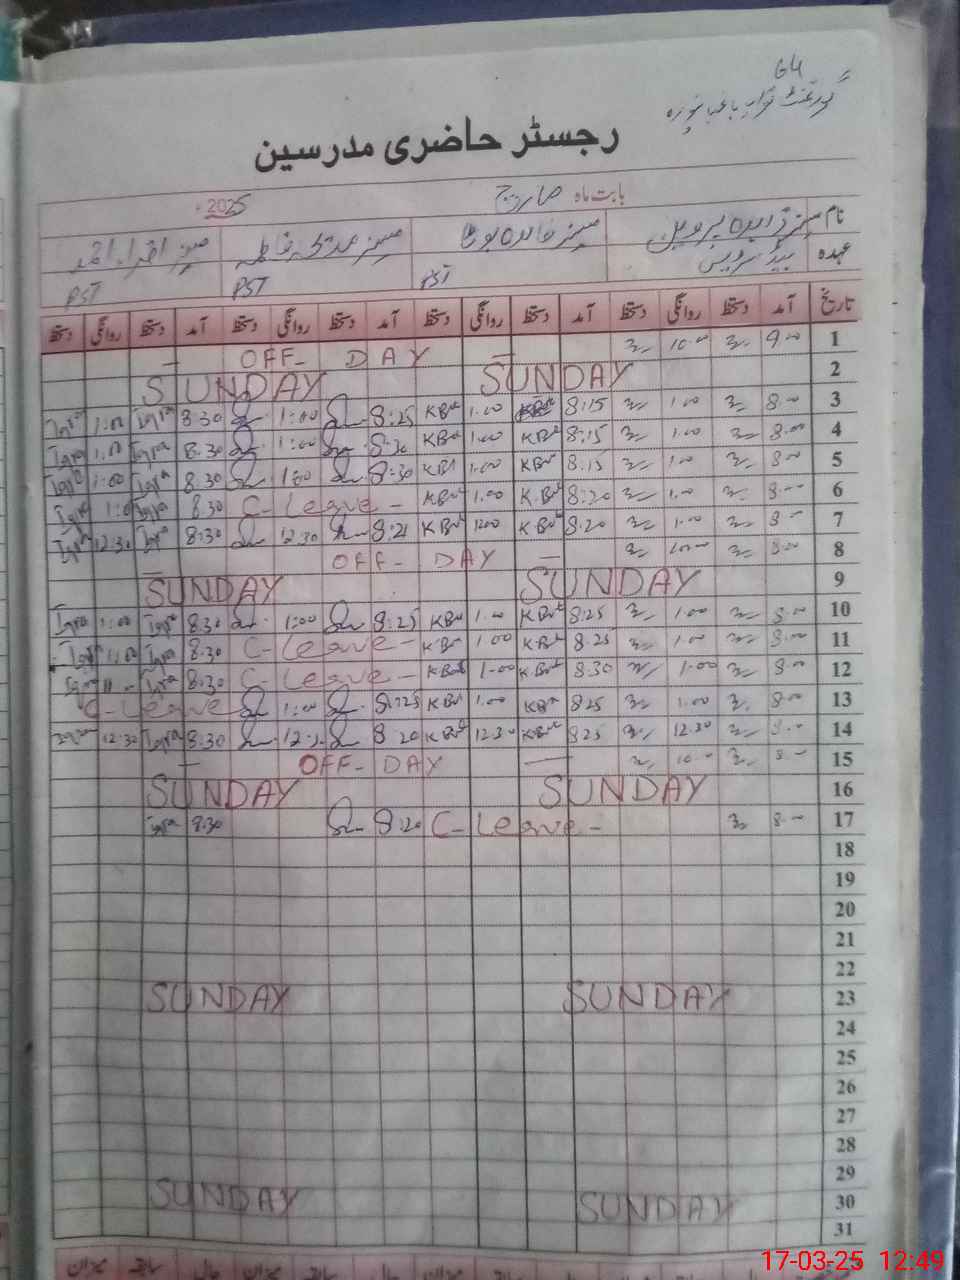 G4
گورنمنٹ گرلز باغبانپورہ
رجسٹر حاضری مدرسین
بابت ماہ مارچ 2025ء
نام مسز فریدہ پروین مسز خالدہ بوٹا مسز مدیحہ فاطمہ مسز اقراء احمد
عہدہ ہیڈ مسٹریس PST PST PST
تاریخ آمد دستخط روانگی دستخط آمد دستخط روانگی دستخط آمد دستخط روانگی دستخط آمد دستخط روانگی دستخط
1 9.00 10.00 – OFF- DAY –
2 SUNDAY SUNDAY
3 8.00 1.00 8:15 1.00 KBut 8:25 1:00 8:30 Iqra 1:00 Iqra
4 8.00 1.00 8:15 KBut 1.00 KBut 8:30 1:00 8.30 Iqra 1:00 Iqra
5 8.00 1.00 8:15 KBut 1.00 KBut 8:30 1:00 8.30 Iqra 1:00 Iqra
6 8.00 1.00 8:20 KBut 1.00 KBut C-Leave- 8.30 Iqra 1:00 Iqra
7 8.00 1.00 8:20 KBut 1.00 KBut 8:21 12.30 8:30 Iqra 12.30 Iqra
8 8.00 10.00 OFF- DAY —
9 SUNDAY SUNDAY
10 8.00 1.00 8:25 KBut 1.00 KBut 8:25 1:00 8.30 Iqra 1:00 Iqra
11 8.00 1.00 8.25 KBut 1.00 KBut C-Leave- 8.30 Iqra 1:00 Iqra
12 8.00 1.00 8.30 KBut 1.00 KBut C-Leave- 8.30 Iqra 11 - Iqra
13 8.00 1.00 825 KBut 1.00 KBut 8:25 1:00 C-Leave
14 8.00 12.30 825 KBut 12.30 KBut 8.20 8.30 Iqra 12.30
15 8.00 10.00 — OFF- DAY —
16 SUNDAY SUNDAY
17 8.00 C-Leave- 8.20 8.30 Iqra
18
19
20
21
22
23 SUNDAY SUNDAY
24
25
26
27
28
29
30 SUNDAY SUNDAY
31
میزان سابقہ حال میزان سابقہ حال میزان سابقہ
17-03-25 12:49